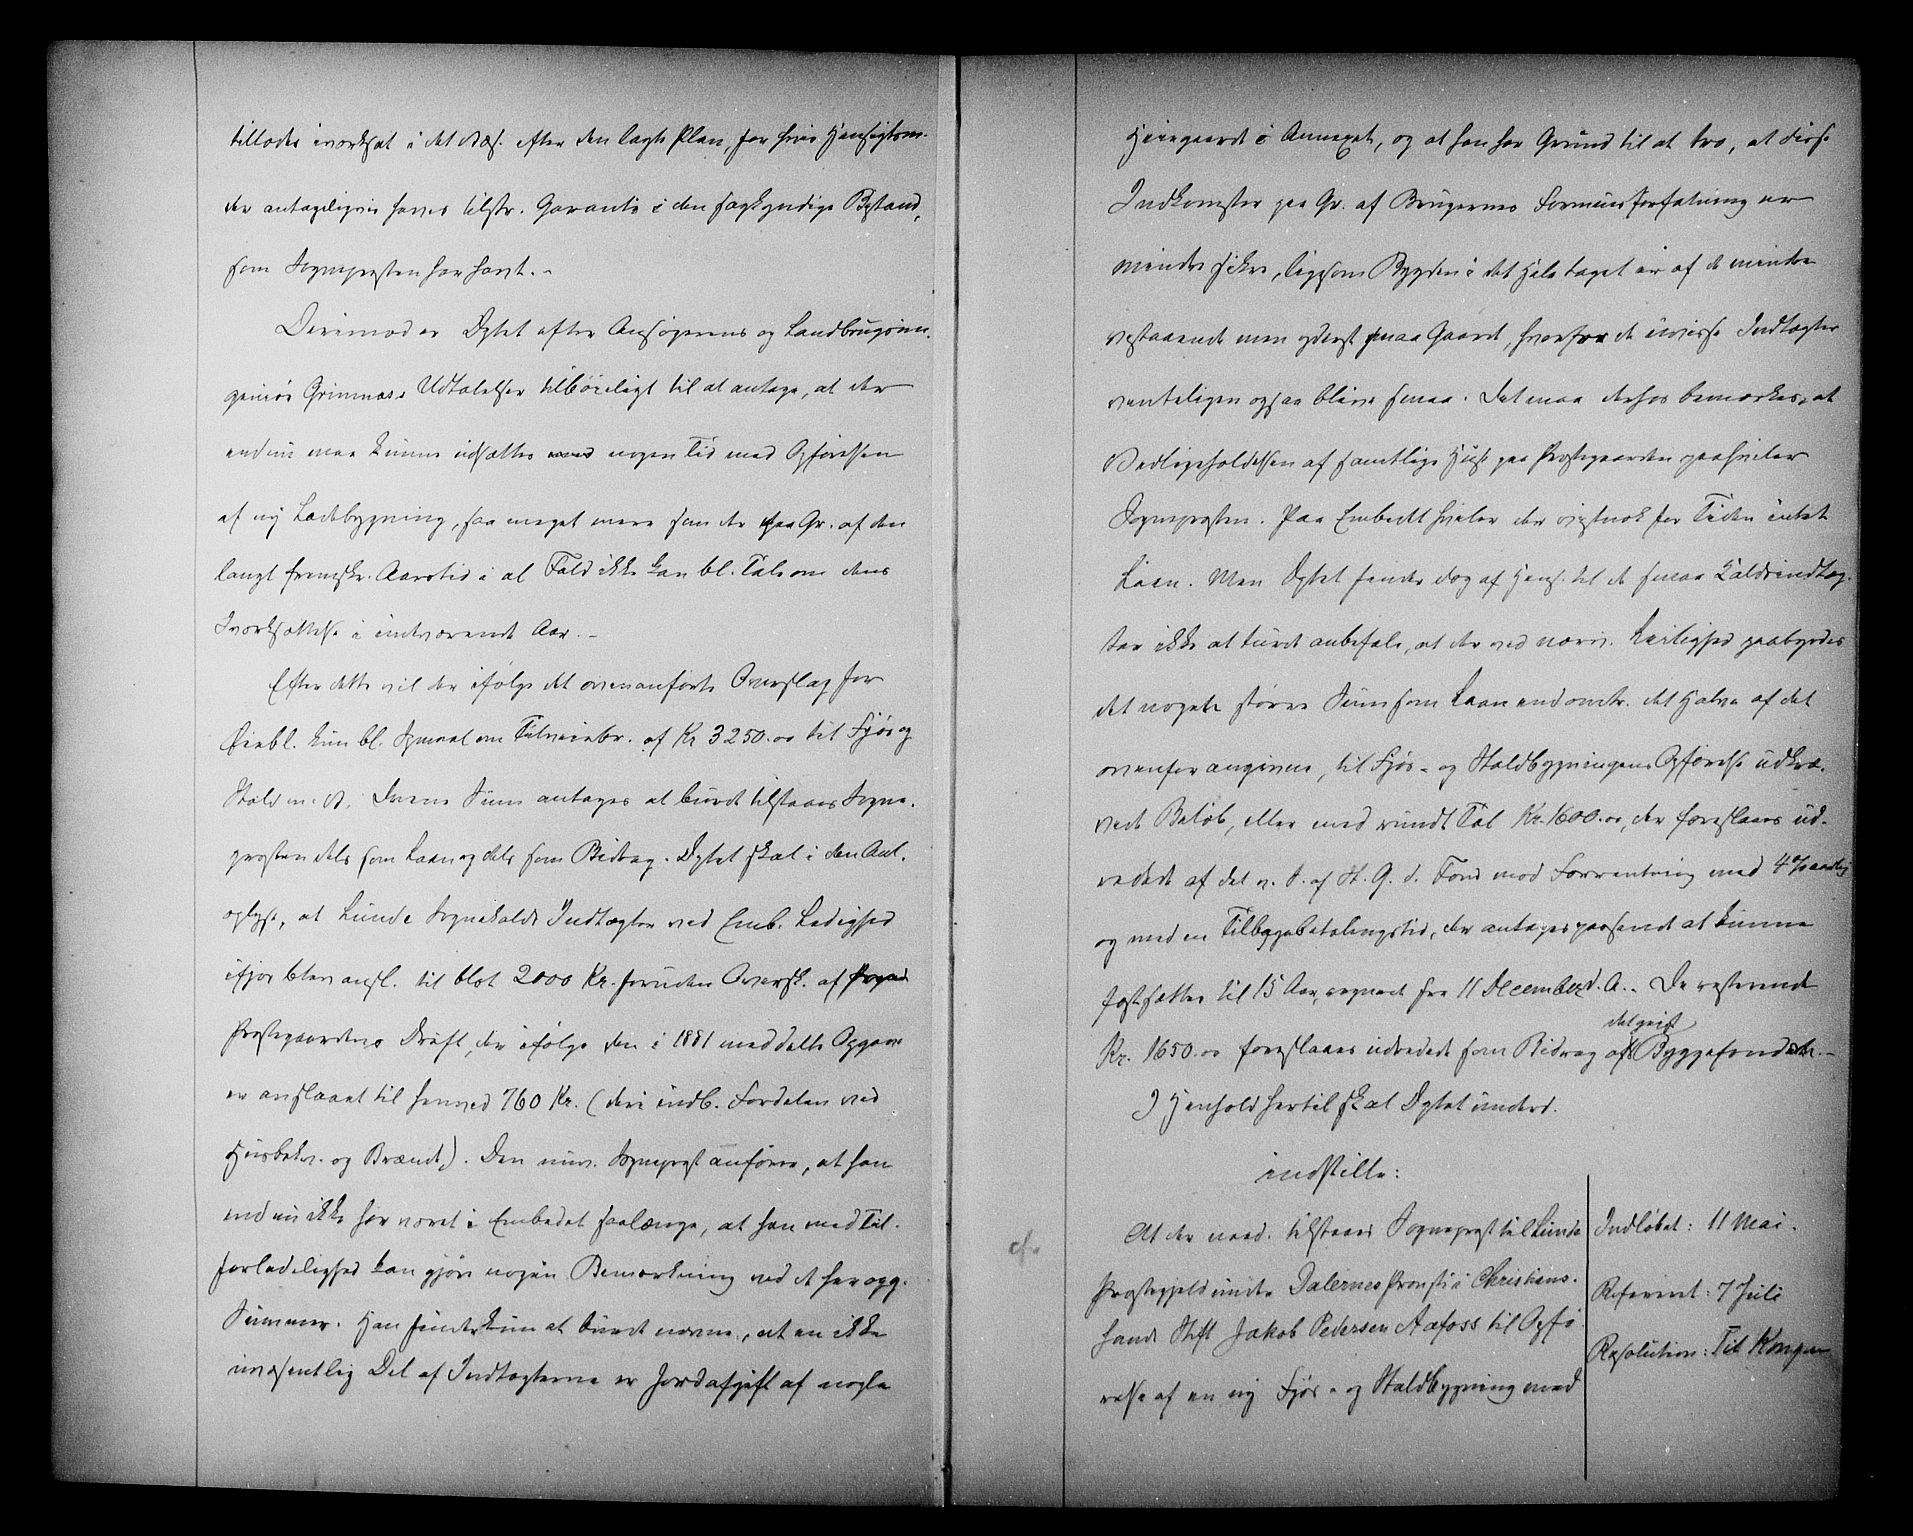 tillodes iverksat i det Væs. efter den lagte Plan, for hvis Hensigtsm.
der antageligvis haves tilstr. Garanti i den sagkyndige Bistand,
som Sognepresten har havt. -
Derimod er Dptet efter Ansøgerens og Landbrugsin-
geniør Grimnæs's Udtalelser tilbøieligt til at antage, at der
endnu maa kunne udsættes nogen Tid med Opførelsen
af ny Ladebygning, saa meget mere som der paa Gr. af den
langt fremskr. Aarstid i al Fald ikke kan bl. Tale om dens
Iverksættelse i indeværende Aar. -
Efter dette vil der ifølge det ovenanførte Overslag for
Øiebl. kun bl. Spmaal om Tilveiebr. af Kr 3250.00 til Fjøs og
Stald m. V. Denne Sum antages at burde tilstaaes Sogne-
presten dels som Laan og dels som Bidrag. Dptet skal i den Anl.
oplyse, at Lunde Sognekalds Indtægter ved Emb. Ledighed
ifjor blev ansl. til blot 2000 Kr. foruden Oversk. af
Prestegaardens Drift, der ifølge den i 1881 meddelte Opgave
er anslaaet til henved 760 Kr. (deri indb. Fordelen ved
Husbekv. og Brænde). Den nuv. Sogneprest anfører, at han
endnu ikke har været i Embedet saalænge, at han med Til-
forladelighed kan gjøre nogen Bemerkning ved de her opg.
Summer. Han finder kun at burde nævne, at en ikke
uvæsentlig Del af Indtægterne er Jordafgift af nogle
Heiegaarde i Annexet, og at han har Grund til at tro, at disse
Indkomster paa Gr. af Brugernes Formuesforfatning er
mindre sikre, ligesom Bygden i det Hele taget er af de mindre
vestaaende men yderst smaa Gaarde, hvorfor de uvisse Indtægter
venteligen ogsaa blive smaa. Det maa derhos bemærkes, at
Vedligeholdelsen af samtlige Huse paa Prestegaarden paahviler
Sognepresten. Paa Embedet hviler der vistnok for Tiden intet
Laan. Men Dptet finder dog af Hens. til de smaa Kaldsindtæg-
ter ikke at turde anbefale, at der ved nærv. Leilighed paabyrdes
det nogen større Sum som Laan end omtr. det Halve af det
ovenfor angivne, til Fjøs- og Staldbygningens Opførelse udkræ-
vede Beløb, eller med rundt Tal Kr. 1600.00, der foreslaaes ud-
redet af det n. S. af St. G. d. Fond mod Forrentning med 4 % aarlig
og med en Tilbagebetalingstid, der antages passende at kunne
fastsættes til 15 Aar, regnet fra 11 December d. A.. De resterende
Kr. 1650.00 foreslaaes udredet som Bidrag af det geistl. Byggefond. -
I Henhold hertil skal Dptet underd.
indstille:
At der naad. tilstaaes Sogneprest til Lunde
Prestegjeld under Dalernes Provsti i Christians-
sands Stift Jakob Pedersen Aafoss til Opfø-
relse af en ny Fjøs- og Staldbygning med
cfr
Indløbet: 11 Mai.
Refereret: 7 Juli
Resolution: Til Kongen